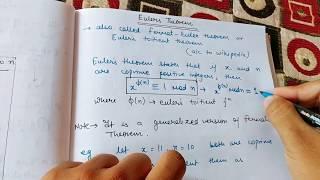 Eulers Theorem
→ also called Fermat-Euler theorem or
Eulers totient theorem
(a/c to wikipedia)
Eulers theorem states that if x and n
are coprime positive integers, then
x^ϕ(n) ≡ 1 mod n → x^ϕ(n) mod n = 1
where ϕ(n) → euler's totient fⁿ
Note → It is a generalized version of fermat
Theorem.
eg let x = 11, n = 10 both are coprime
them as